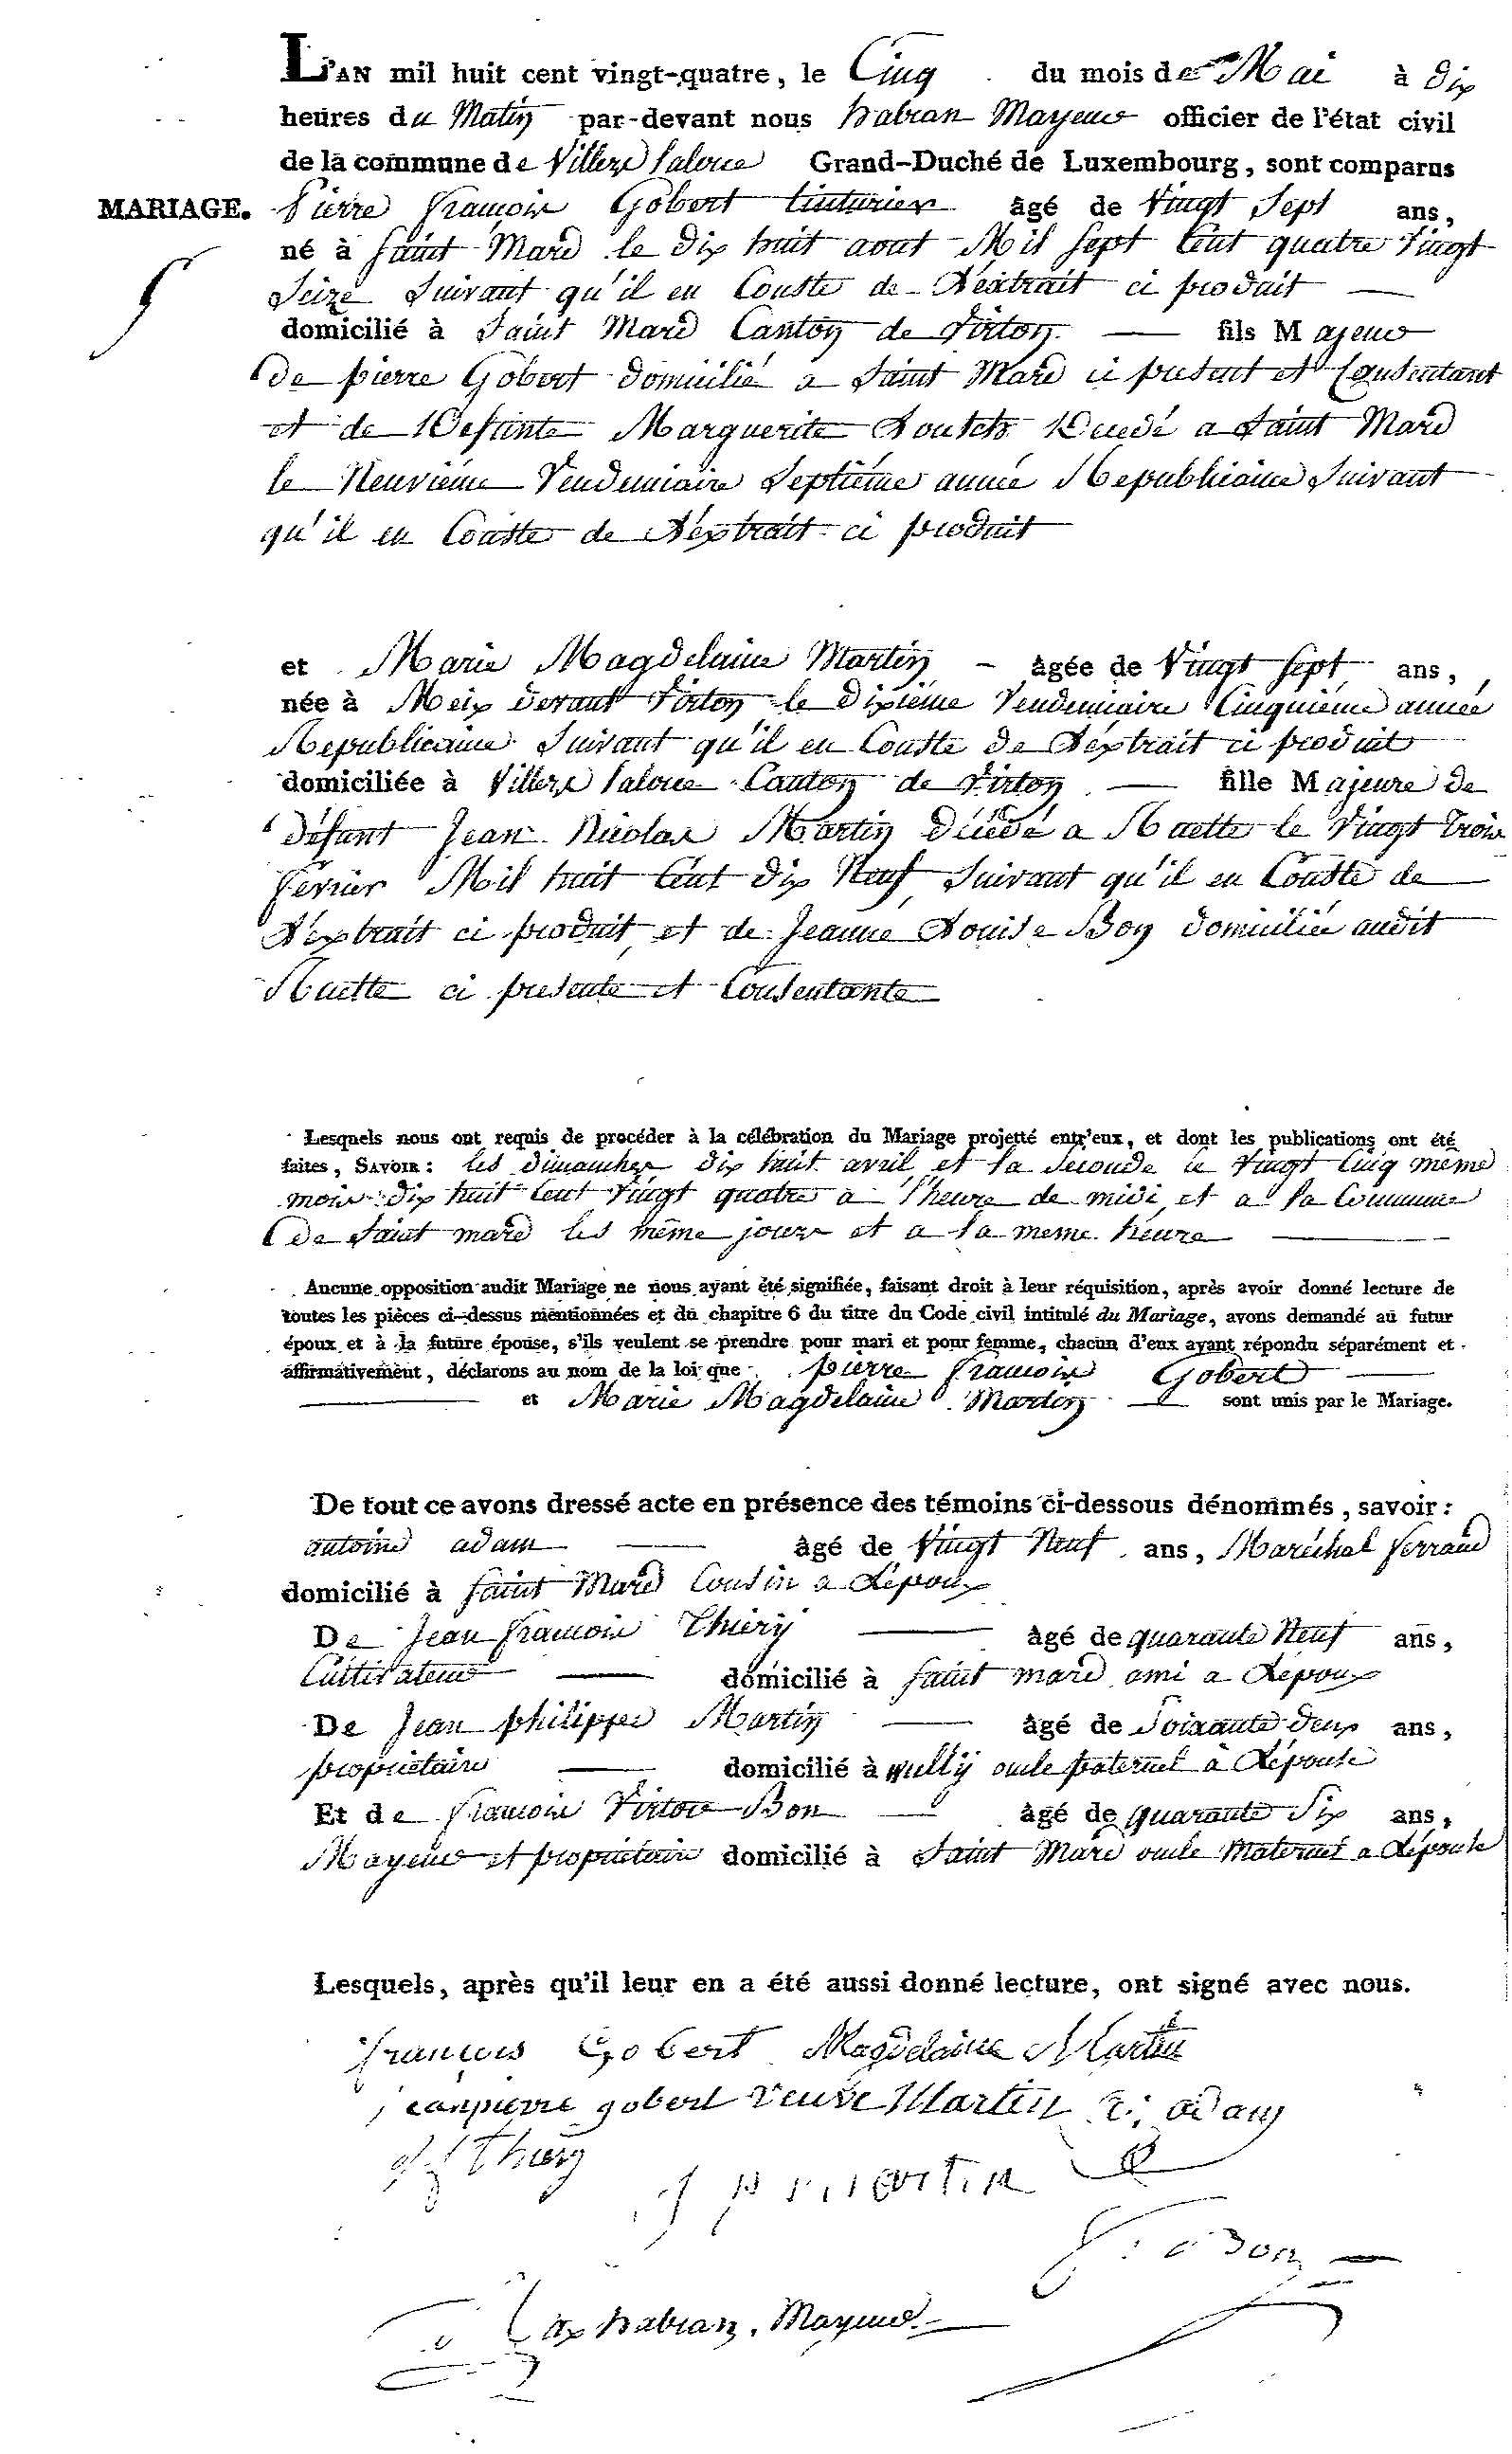 L'AN mil huit cent vingt-quatre, le Cinq du mois de Mai à dix
heures du Matin par-devant nous habran Mayeur officier de l'état civil
de la commune de Villers Laloue Grand-Duché de Luxembourg, sont comparus
MARIAGE. Pierre françois Gobert tinturier âgé de Vingt Sept ans,
né à Saint Mard le dix huit aout Mil Sept Cent quatre Vingt
Seize Suivant qu'il en Conste de L'extrait ci produit
domicilié à Saint Mard Canton de Virton fils Majeur
De pierre Gobert domicilié a Saint Mard ci present et Consentant
et de Défunte Marguerite Décedé a Saint Mard
le Neuvième Vendemiaire Septième année Republicaine Suivant
qu'il en Conste de L'éxtrait ci produit
et Marie Magdelaine Martin âgée de Vingt Sept ans,
née à Meix devant Virton le dixième Vendemiaire Cinquième année
Republicaine Suivant qu'il en Conste de L'éxtrait ci produit
domiciliée à Villers Laloue Canton de Virton fille Majeure de
défunt Jean Nicolas Martin décédé a Ruette le Vingt trois
fevrier Mil huit Cent dix Neuf Suivant qu'il en Conste de
L'éxtrait ci produit, et de Jeanne Louise Bon domiciliée audit
Ruette ci presente et Consentante
Lesquels nous ont requis de procéder à la célébration du Mariage projetté entr'eux, et dont les publications ont été
faites, SAVOIR : les dimanches dix huit avril et la Seconde le Vingt Cinq même
mois dix huit Cent Vingt quatre a l'heure de midi, et a la Commune
De Saint mard les même jours et a la meme heure
Aucune opposition audit Mariage ne nous ayant été signifiée, faisant droit à leur réquisition, après avoir donné lecture de
toutes les pièces ci-dessus mentionnées et du chapitre 6 du titre du Code civil intitulé du Mariage, avons demandé au futur
époux et à la future épouse, s'ils veulent se prendre pour mari et pour femme, chacun d'eux ayant répondu séparément et
affirmativement, déclarons au nom de la loi que pierre françois Gobert
et Marie Magdelaine Martin sont unis par le Mariage.
De tout ce avons dressé acte en présence des témoins ci-dessous dénommés, savoir :
antoine adam âgé de Vingt Neuf ans, Maréchal ferrand
domicilié à Saint Mard Cousin a L'époux
De Jean françois Thiery âgé de quarante Neuf ans,
Cultivateur domicilié à Saint mard ami a L'époux
De Jean philippe Martin âgé de Soixante deux ans,
propriétaire domicilié à oncle paternel à L'épouse
Et de françois Victor Bon âgé de quarante Six ans,
Mayeur et propriétaire domicilié à Saint Mard oncle Maternel a L'épouse
Lesquels, après qu'il leur en a été aussi donné lecture, ont signé avec nous.
françois Gobert Magdelaine Martin
jeanpierre gobert veuve Martin adam
Thiery
J p martin
Bon
habran, Mayeur